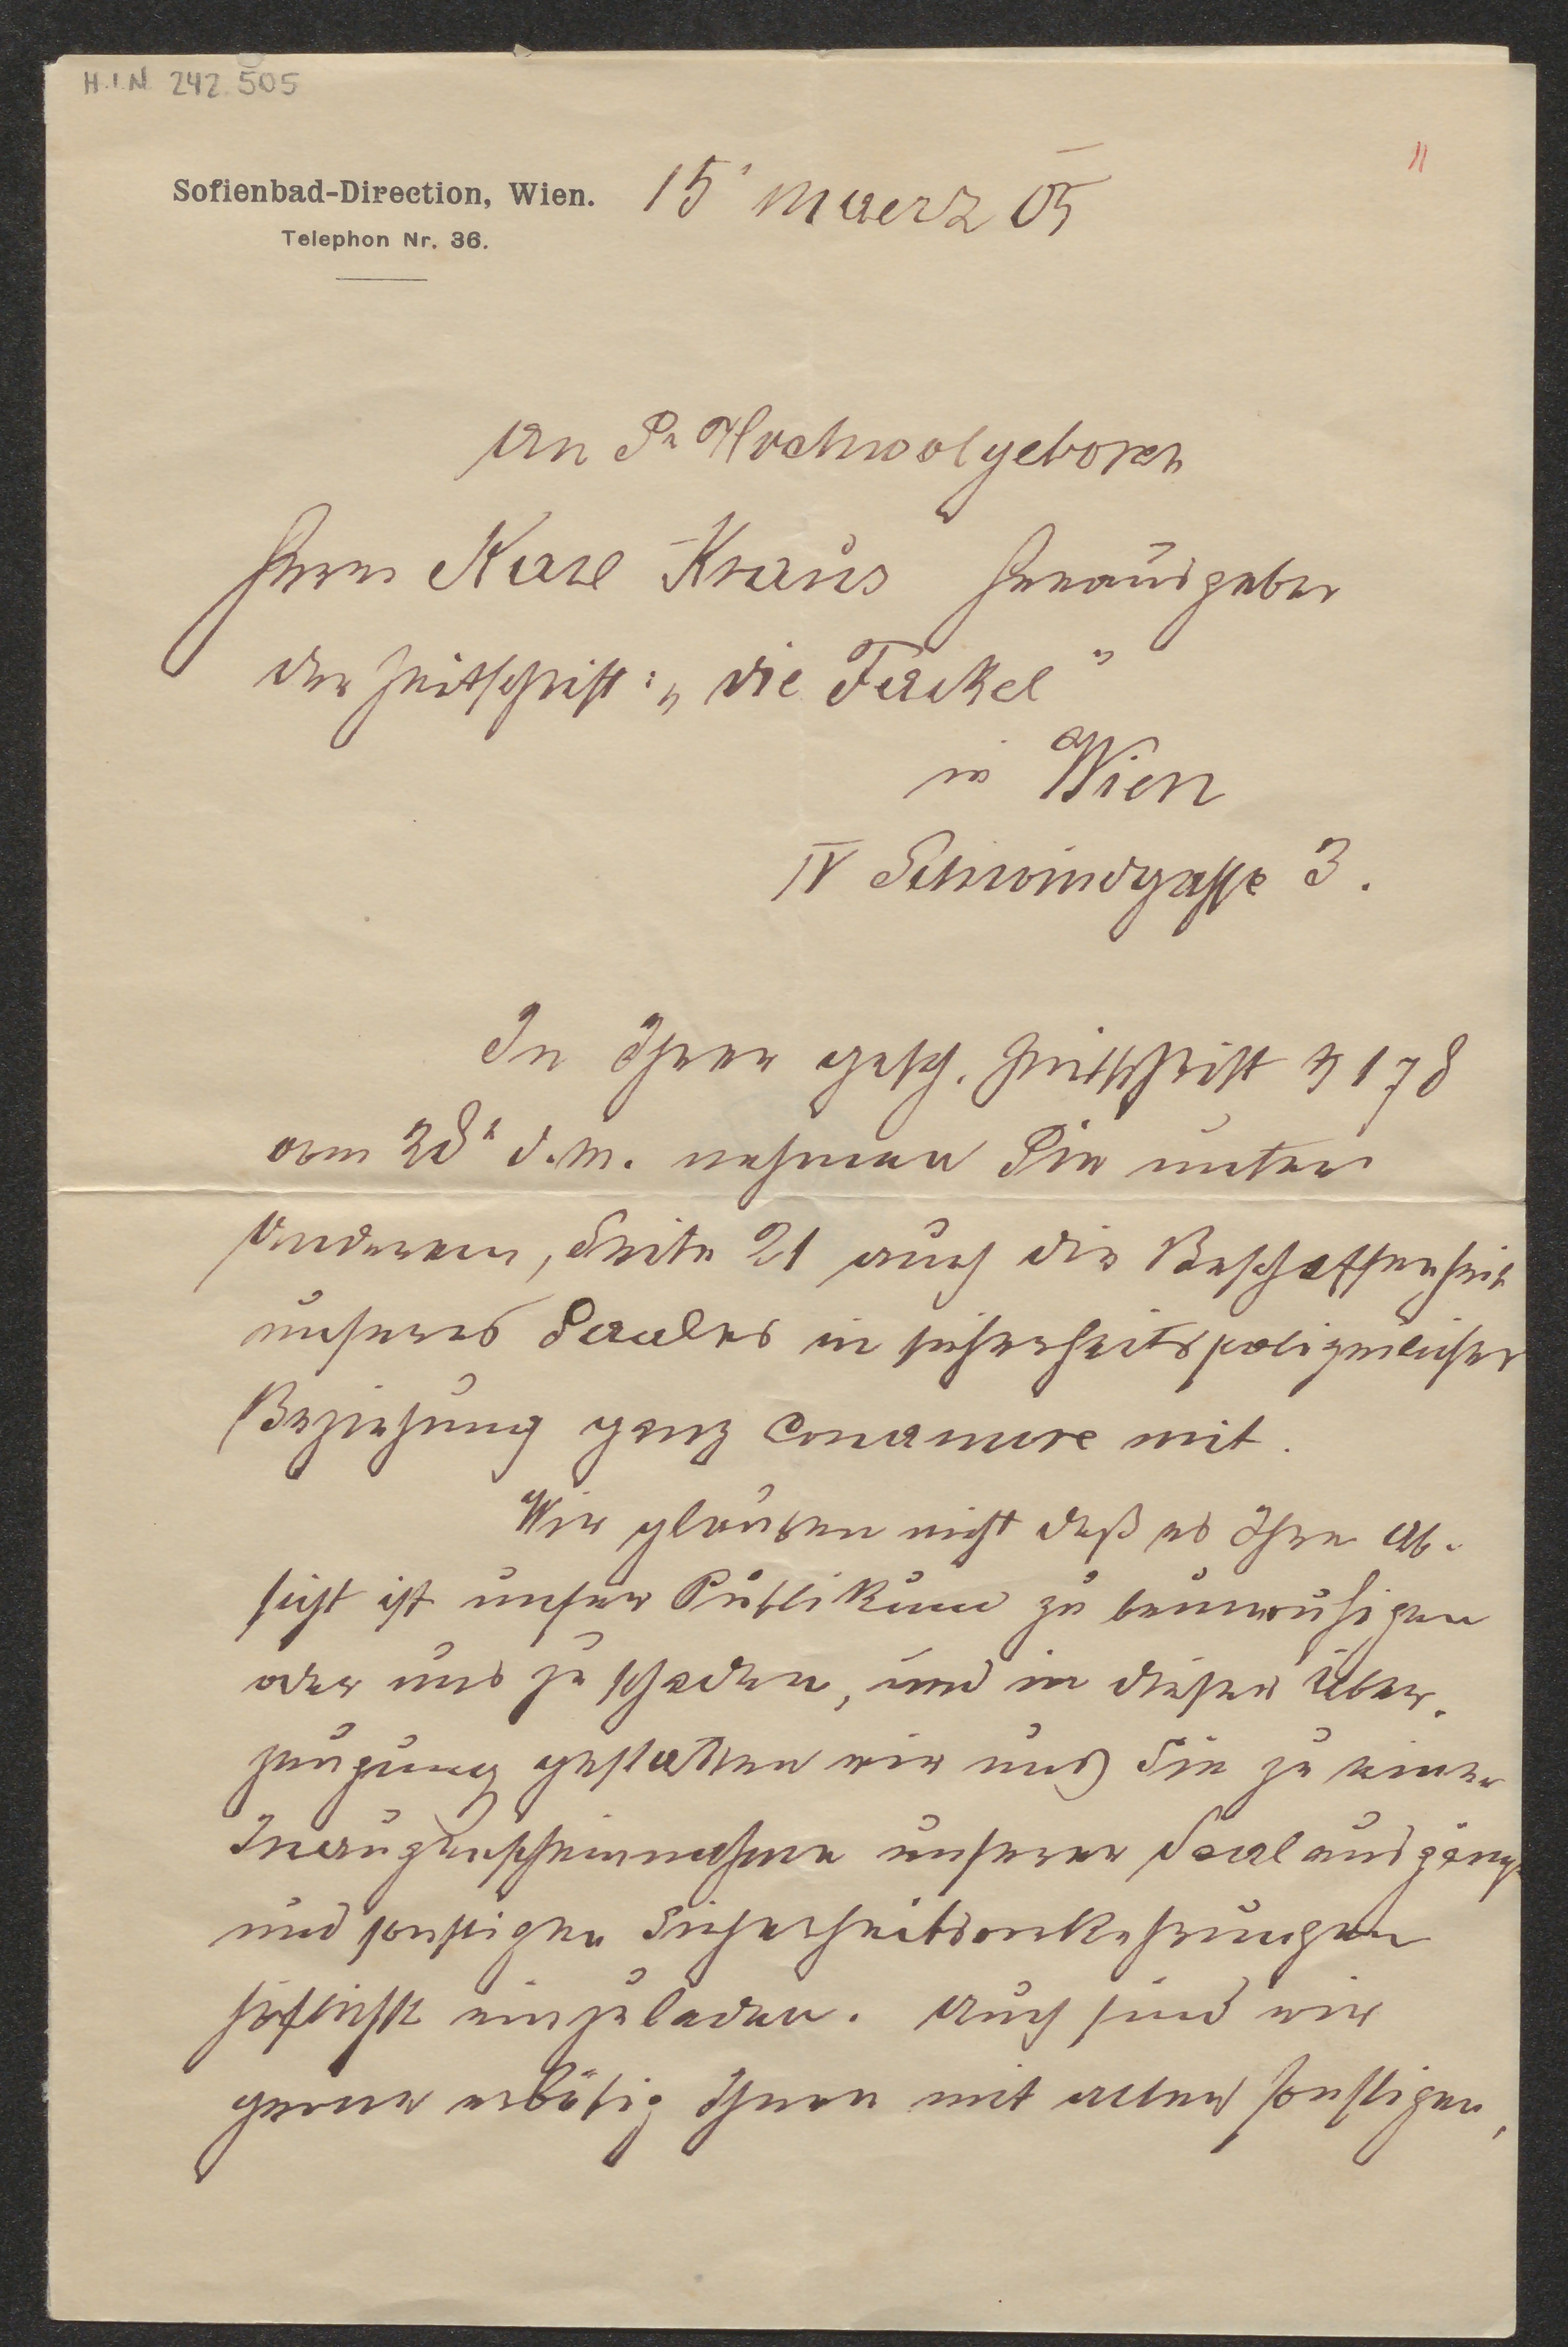 H.I.N. 242.505
11
Sofienbad-Direction, Wien. 15' Maerz 05
Telephon Nr. 36.
An Sr Hochwolgeboren
Herrn Karl Kraus Herausgeber
der Zeitschrift: „die Fackel"
in Wien
IV Schwindgasse 3.
In Ihrer gesch. Zeitschrift 178
vom d. M. nehmen Sie unter
Anderem, Seite 21 auch die Beschaffenheit
unseres Saales in sicherheitspolizeilicher
Beziehung ganz conamore mit.
Wir glauben nicht daß es Ihre Ab-
sicht ist unser Publikum zu beunruhigen
oder uns zu schaden, und in dieser Über-
zeugung gestatten wir uns Sie zu einer
Inaugenscheinnahme unserer Saalausgänge
und sonstigen Sicherheitsvorkehrungen
höflichst einzuladen. Auch sind wir
gerne erbötig Ihnen mit allen sonstigen,